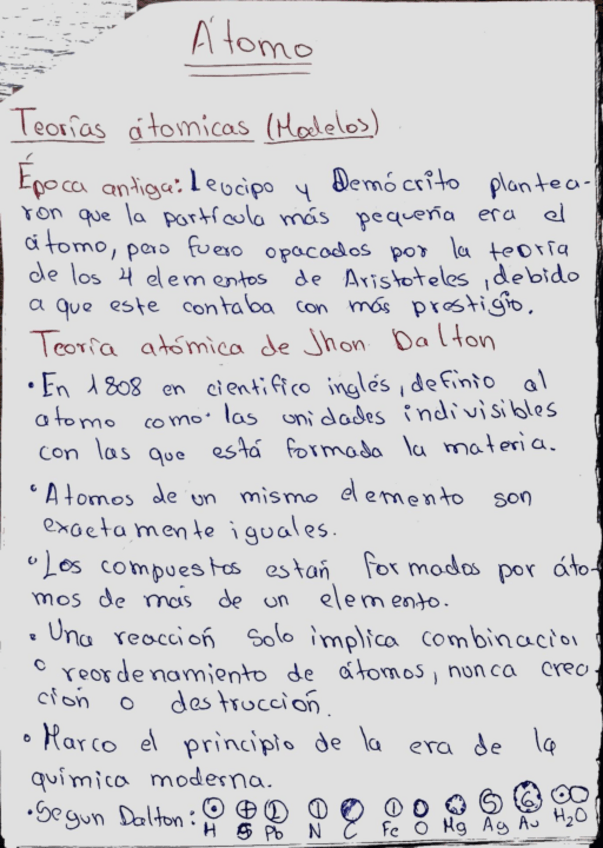 Átomo
Teorías átomicas (Modelos)
Época antiga: Leucipo y Demócrito plantea-
ron que la partícula más pequeña era el
átomo, pero fuero opacados por la teoría
de los 4 elementos de Aristoteles, debido
a que este contaba con más prestigio.
Teoría atómica de Jhon Dalton
• En 1808 en cientifico inglés, definio al
atomo como las unidades indivisibles
con las que está formada la materia.
• Atomos de un mismo elemento son
exactamente iguales.
• Los compuestos están formados por áto-
mos de más de un elemento.
• Una reacción solo implica combinacion
o reordenamiento de átomos, nunca crea
ción o destrucción.
• Marco el principio de la era de la
química moderna.
• Segun Dalton:
H S Pb N C Fe O Mg Ag Au H2O